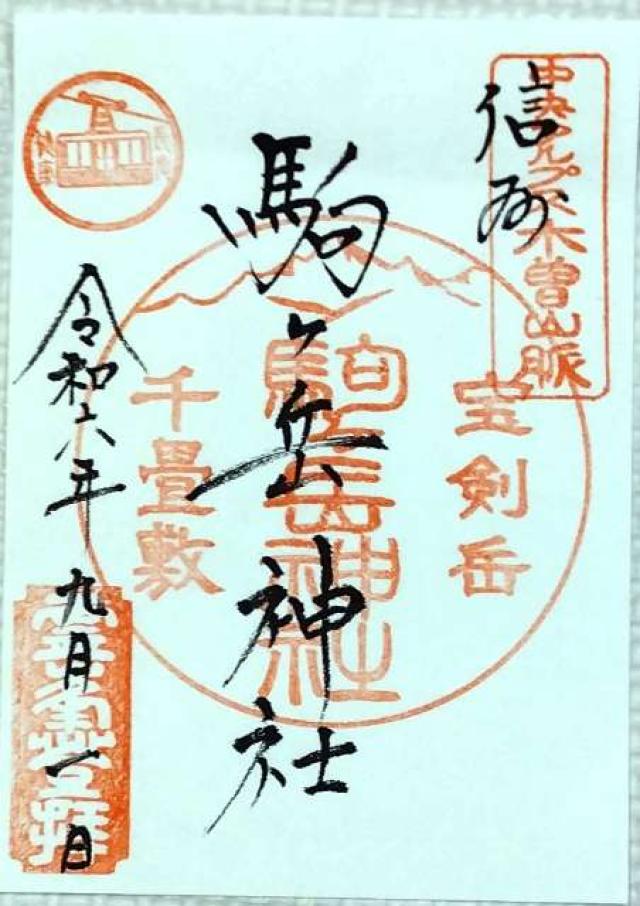 中央アルプス木曽山脈
信州
宝剣岳
駒ヶ岳神社
駒ヶ岳神社
千畳敷
令和六年九月一日